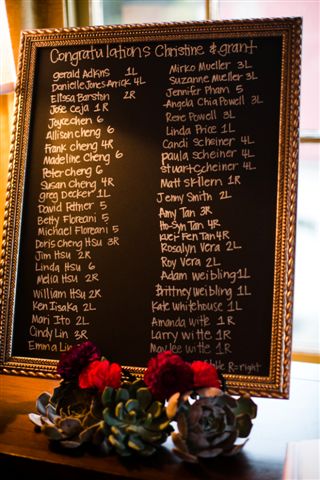 Congratulations Christine & grant
gerald Adkins 1L
Danielle Jones Arrick 4L
Elissa Barstein 2R
Jose Ceja 1R
Joyce chen 6
Allison cheng 6
Frank cheng 4R
Madeline Cheng 6
Peter cheng 6
Susan Cheng 4R
greg Decker 1L
David Feltner 5
Betty Floreani 5
Michael Floreani 5
Doris Cheng Hsu 3R
Jim Hsu 2L
Linda Hsu 6
Melia Hsu 2R
William Hsu 2R
Ken Isaka 2L
Mari Ito 2L
Cindy Lin 3R
Emma Lin
Mirko Mueller 3L
Suzanne Mueller 3L
Jennifer Pham 5
Angela Chia Powell 3L
Rene Powell 3L
Linda Price 1L
Candi scheiner 4L
paula scheiner 4L
stuart scheiner 4L
Matt skllern 1R
Jenny Smith 2L
Amy Tan 3R
Ho-Syn Tan 4R
Kuei-Fen Tan 4R
Rosalyn Vera 2L
Roy Vera 2L
Adam weibling 1L
Brittney weibling 1L
Kate whitehouse 1L
Amanda witte 1R
Larry witte 1R
Maylee witte 1R
R: right